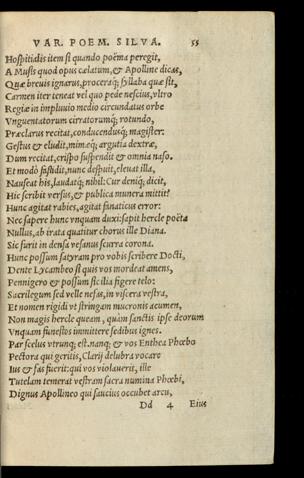 VAR. POEM. SILVA. 55
Hospitiolis item si quando poëma peregit,
A Musis quod opus cælatum, & Apolline dicas,
Quæ breuis ignarus, proceraq́; syllaba quæ sit,
Carmen iter teneat vel quo pede nescius, vltro
Regiæ in impluuio medio circundatus orbe
Vnguentatorum cirratorumq́; rotundo,
Præclarus recitat, conducendusq́; magister:
Gestus & eludit, mimæq́; argutia dextræ,
Dum recitat, crispo suspendit & omnia naso.
Et modò fastidit, nunc despuit, eleuat illa,
Nauseat his, laudatq́; nihil: Cur deniq́; dicit,
Hic scribit versus, & publica munera mittit?
Hunc agitat rabies, agitat fanaticus error:
Nec sapere hunc vnquam duxi: sapit hercle poëta
Nullus, ab irata quatitur chorus ille Diana.
Sic furit in densa vesanus scurra corona.
Hunc possum satyram pro vobis scribere Docti,
Dente Lycambeo si quis vos mordeat amens,
Pennigero & possum sicilia figere telo:
Sacrilegum sed velle nefas, in viscera vestra,
Et nomen rigidi vt stringam mucronis acumen,
Non magis hercle queam, quàm sanctis ipse deorum
Vnquam funestos immittere sedibus ignes.
Par scelus vtrunq́; est. nanq́; & vos Enthea Phœbo
Pectora qui geritis, Clarij delubra vocare
Ius & fas fuerit: qui vos violauerit, ille
Tutelam temerat vestram sacra numina Phœbi,
Dignus Apollineo qui saucius occubet arcu,
Dd 4 Eius